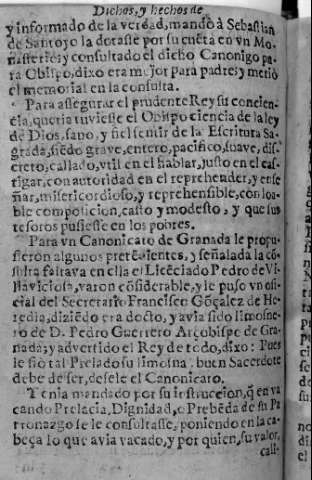 Dichos, y hechos de
y informado de la verdad, mandò à Sebastian
de Santoyo la dotasse por su cuẽta en vn Mo-
nasterio; y consultado el dicho Canonigo pa-
ra Obispo, dixo era mejor para padre; y metiò
el memorial en la consulta.
Para assegurar el prudente Rey su concien-
cia, queria tuviesse el Obispo ciencia de la ley
de Dios, sano, y fiel sentir de la Escritura Sa-
grada, siẽdo grave, entero, pacifico, suave, dis-
creto, callado, vtil en el hablar, justo en el cas-
tigar, con autoridad en el reprehender, y ense
ñar, misericordioso, y reprehensible, con loa-
ble composicion, casto y modesto, y que sus
tesoros pusiesse en los pobres.
Para vn Canonicato de Granada le propu-
sieron algunos pretẽsientes, y señalada la cõ-
sulta faltava en ella el Licẽciado Pedro de Vi-
llaviciosa, varon cõsiderable, y le puso vn ofi-
cial del Secretario Francisco Gõçalez de He-
redia, diziẽdo era docto, y avia sido limosne-
ro de D. Pedro Guerrero Arçobispo de Gra-
nada; y advertido el Rey de todo, dixo: Pues
le fiò tal Prelado su limosna, buen Sacerdote
debe de ser, desele el Canonicato.
Tenia mandado por su instruccion, q̃ en va
cando Prelacia, Dignidad, o Prebẽda de su Pa
tronazgo se le consultasse, poniendo en la ca-
beça lo que avia vacado, y por quien, su valor,
cali-